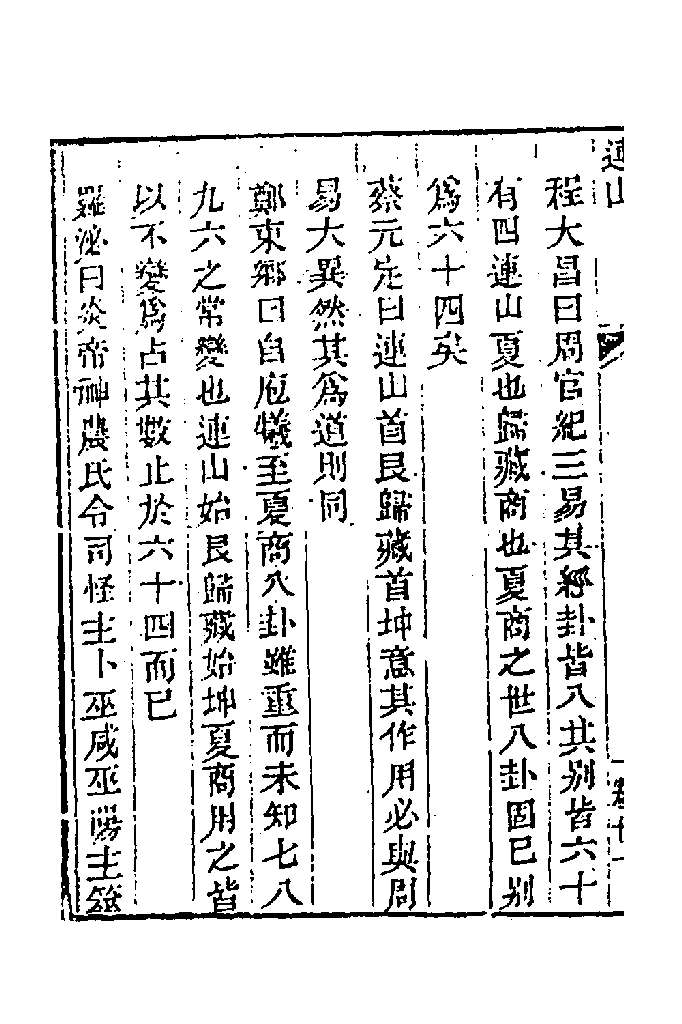 連山
程大昌曰周官紀三易其經卦皆八其别皆六十
有四連山夏也歸藏商也夏商之世八卦固已别
爲六十四矣
蔡元定曰連山首艮歸藏首坤意其作用必與周
易大異然其爲道則同
鄭東鄉曰自庖犧至夏商八卦雖重而未知七八
九六之常變也連山始艮歸藏始坤夏商用之皆
以不變爲占其數止於六十四而已
羅泌曰炎帝神農氏令司怪主卜巫咸巫陽主筮